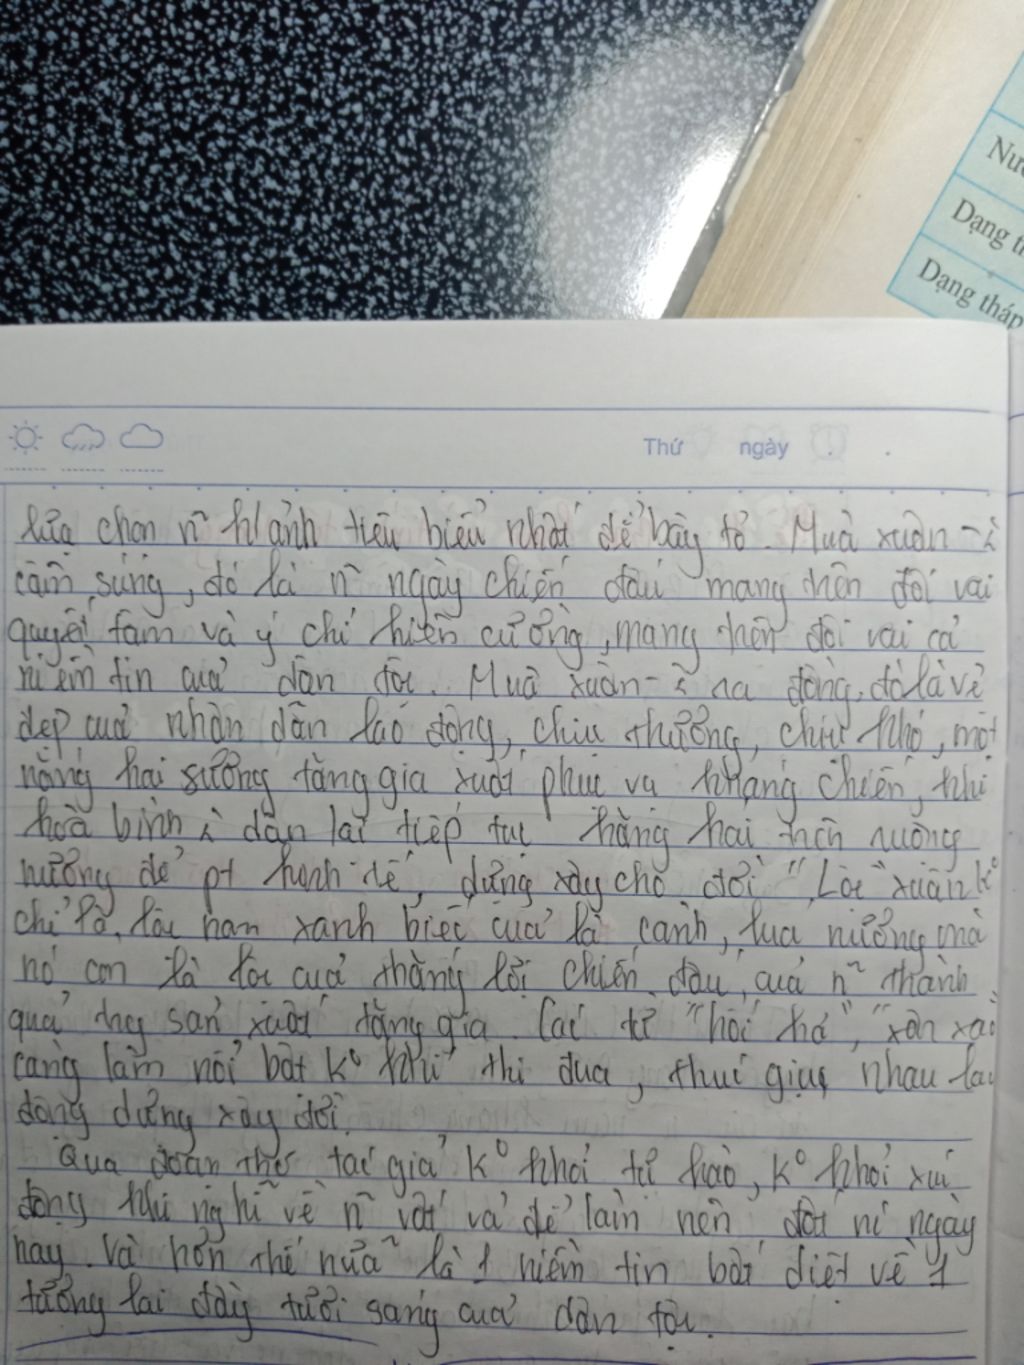 Nướ
Dạng t
Dạng tháp
Thứ ngày
lựa chọn n~ h/ảnh tiêu biểu nhất để bày tỏ. Mùa xuân -
cầm súng, đó là n~ ngày chiến đấu mang trên đôi vai
quyết tâm và ý chí kiên cường, mang trên đôi vai cả
niềm tin của dân tộc. Mùa xuân - ra đồng, đó là vẻ
đẹp của nhân dân lao động, chịu thương, chịu khó, một
nắng hai sương tăng gia xuất phục vụ kháng chiến, khi
hoà bình dân lại tiếp tục hăng hái trên ruộng
nương để pt kinh tế, dựng xây cho đời. "Lộc" xuân k⁰
chỉ là lộc non xanh biếc của lá cành, lúa nương mà
nó còn là lộc của thắng lợi chiến đấu, của n~ thành
quả sản xuất tăng gia. Các từ "hối hả", "xôn xao
càng làm nổi bật k⁰ khí thi đua, thúc giục nhau lao
động dựng xây đời.
Qua đoạn thơ tác giả k⁰ khỏi tự hào, k⁰ khỏi xúc
động khi nghĩ về n~ vất vả để làm nên đất nc ngày
nay. Và hơn thế nữa là 1 niềm tin bất diệt về 1
tương lai đầy tươi sáng của dân tộc.